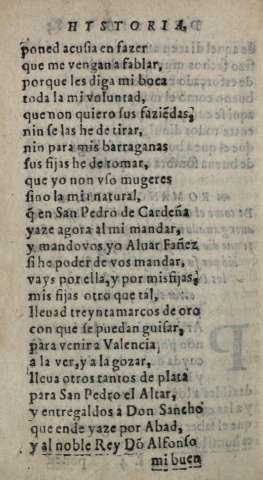 HYSTORIA,
poned acusia en fazer
que me vengan a fablar,
porque les diga mi boca
toda la mi voluntad,
que non quiero sus faziẽdas,
nin se las he de tirar,
nin para mis barraganas
sus fijas he de tomar,
que yo non vso mugeres
sino la mia natural,
q̃ en San Pedro de Cardeña
yaze agora al mi mandar,
y mandovos yo Aluar Fañez
si he poder de vos mandar,
vays por ella, y por mis fijas,
mis fijas otro que tal,
lleuad treynta marcos de oro
con que se puedan guisar,
para venir a Valencia
a la ver, y a la gozar,
lleua otros tantos de plata
para San Pedro el Altar,
y entregaldos a Don Sancho
que ende yaze por Abad,
y al noble Rey Dõ Alfonso
mi buen